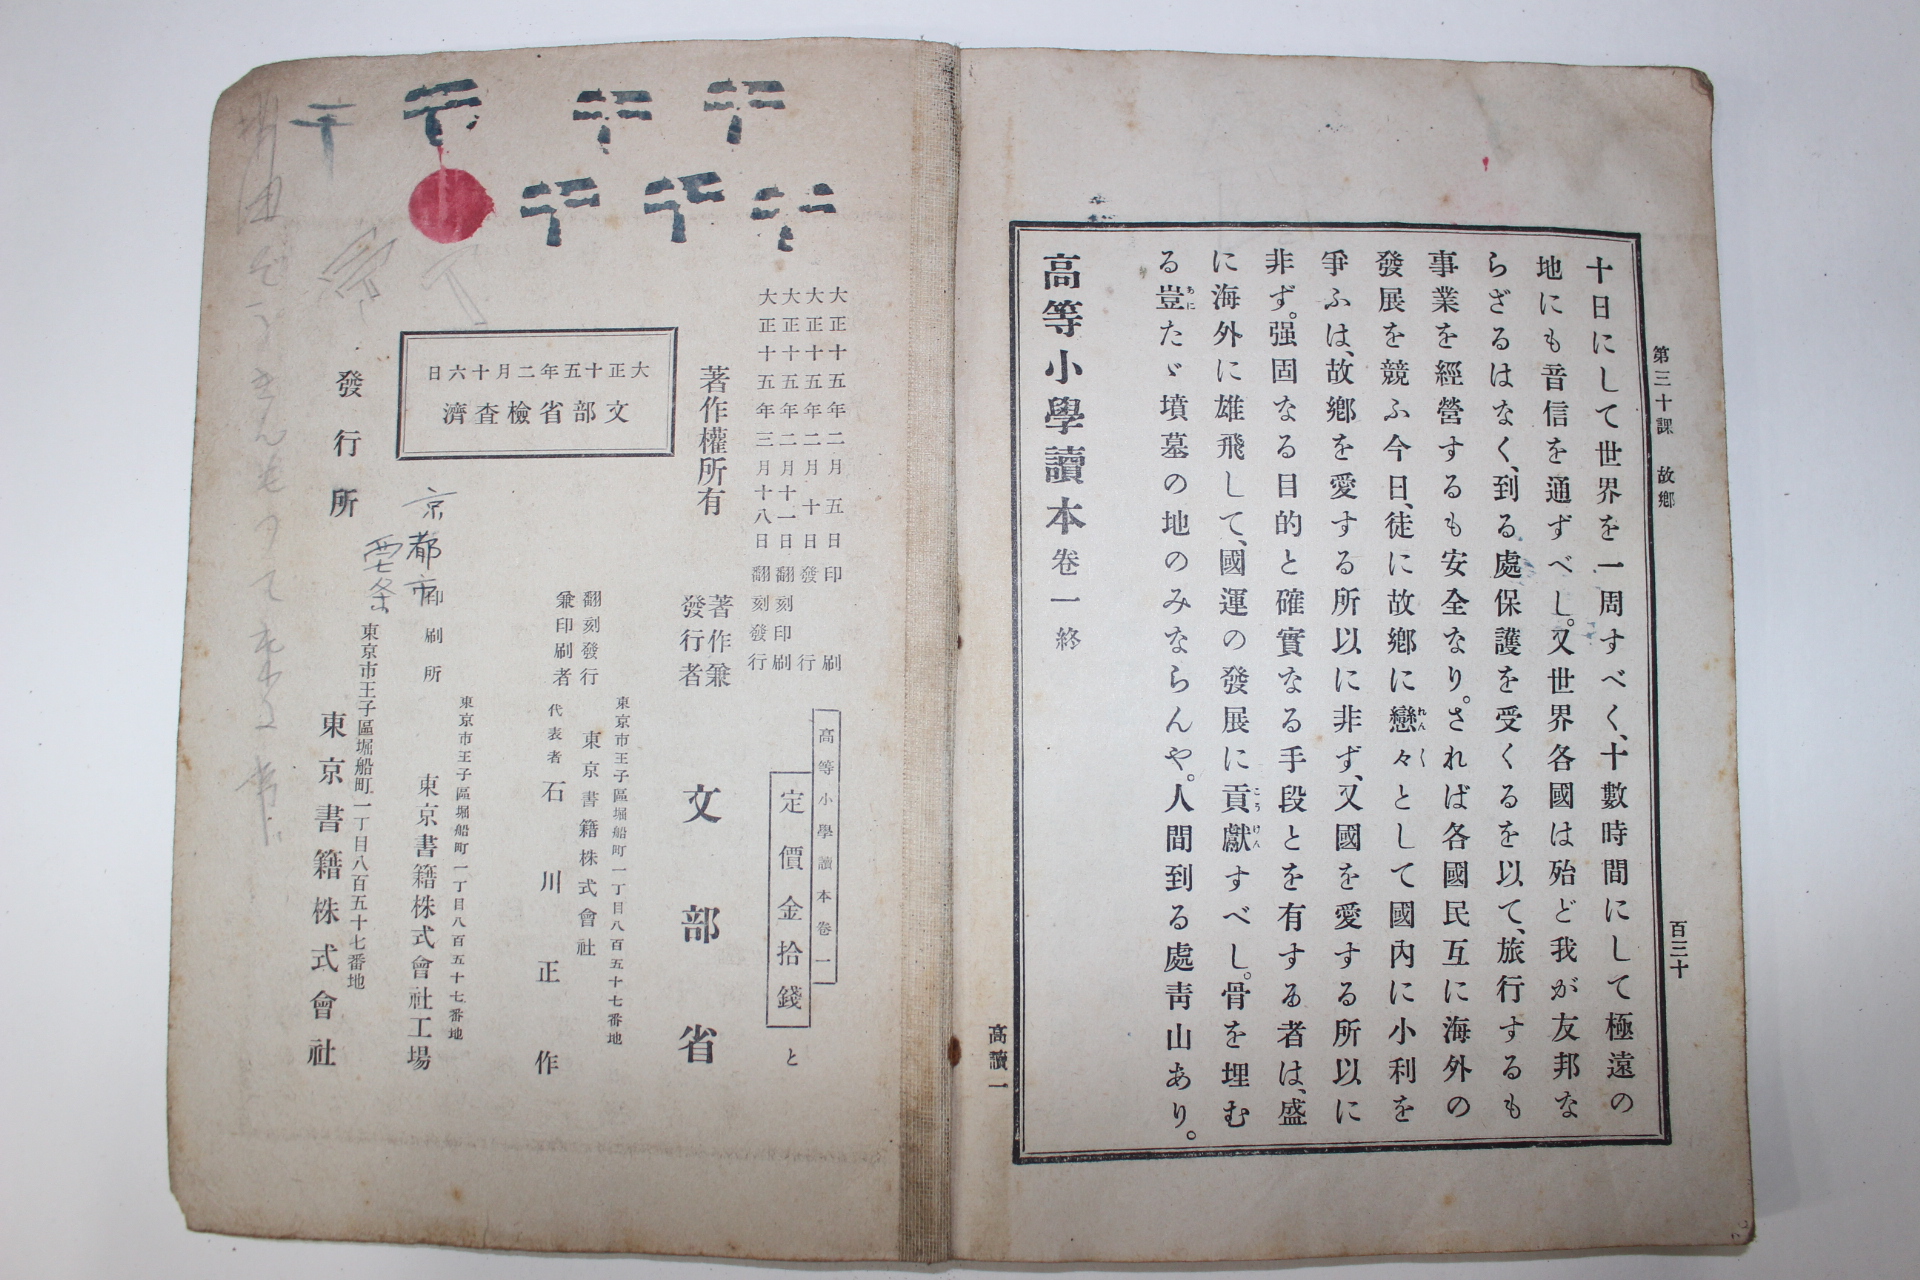 第三十課　故鄕
百三十
十日にして世界を一周すべく、十數時間にして極遠の
地にも音信を通ずべし。又世界各國は殆ど我が友邦な
らざるはなく、到る處保護を受くるを以て、旅行するも
事業を經營するも安全なり。されば各國民互に海外の
發展を競ふ今日、徒に故鄕に戀々として國內に小利を
爭ふは、故鄕を愛する所以に非ず、又國を愛する所以に
非ず。强固なる目的と確實なる手段とを有する者は、盛
に海外に雄飛して、國運の發展に貢獻すべし。骨を埋む
る豈たゞ墳墓の地のみならんや。人間到る處靑山あり。
高等小學讀本卷一終
高讀一
大正十五年二月五日印刷
大正十五年二月十日發行
大正十五年二月十一日翻刻印刷
大正十五年三月十八日翻刻發行
高等小學讀本卷一
定價金拾錢
と
著作權所有
著作兼
發行者
文部省
大正十五年二月十六日
文部省檢查濟
東京市王子區堀船町一丁目八百五十七番地
翻刻發行
兼印刷者
東京書籍株式會社
代表者 石川正作
東京市王子區堀船町一丁目八百五十七番地
印刷所
東京書籍株式會社工場
京都市
東京市王子區堀船町一丁目八百五十七番地
發行所
東京書籍株式會社